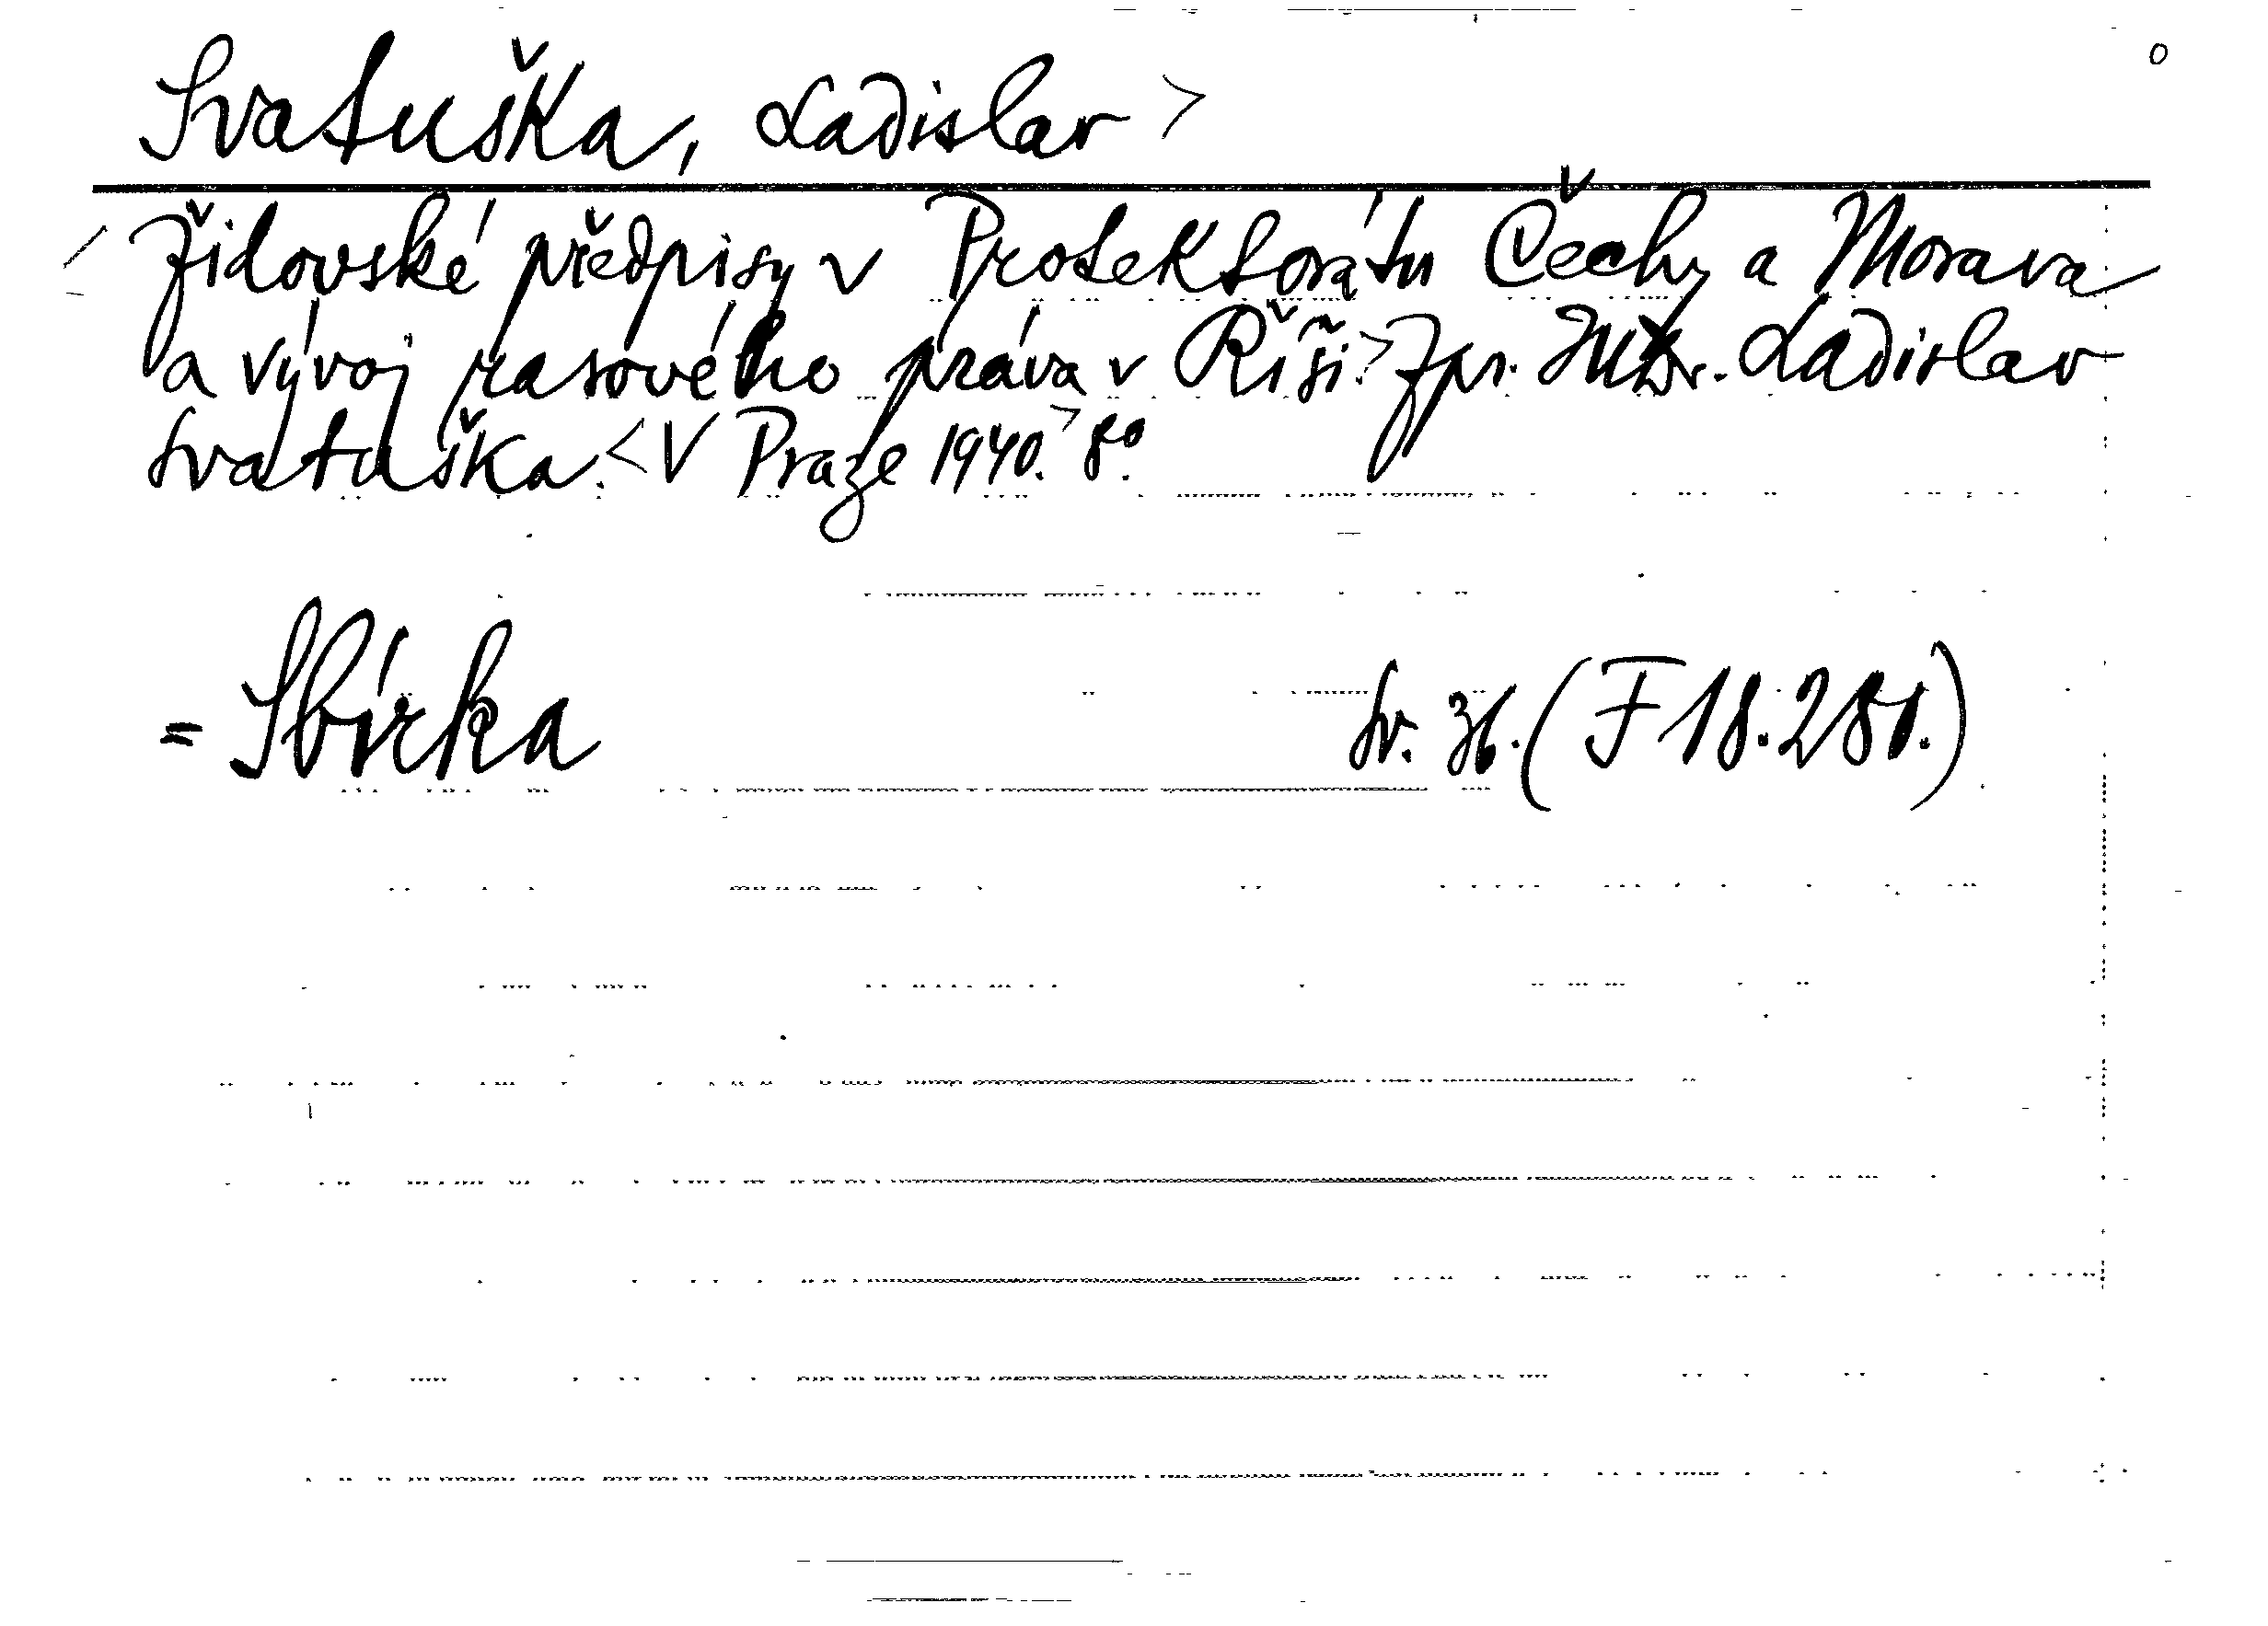 Svatuška, Ladislav >
< Židovské předpisy v Protektorátu Čechy a Morava
a vývoj rasového práva v Říši.> Zpr. JUDr. Ladislav
Svatuška. < V Praze 1940.> 8°.
= Sbírka sv. 36. (F 18.281.)